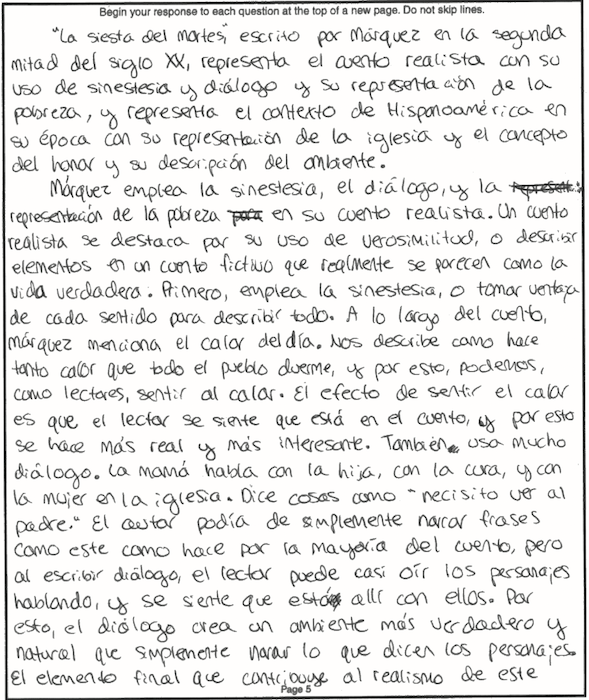 Begin your response to each question at the top of a new page. Do not skip lines.
"La siesta del martes," escrito por Márquez en la segunda
mitad del siglo XX, representa el cuento realista con su
uso de sinestesia y diálogo y su representación de la
pobreza, y representa el contexto de Hispanoamérica en
su época con su representación de la iglesia y el concepto
del honor y su descripción del ambiente.
Márquez emplea la sinestesia, el diálogo, y la
representación de la pobreza en su cuento realista. Un cuento
realista se destaca por su uso de verosimilitud, o describir
elementos en un cuento fictivo que realmente se parecen como la
vida verdadera. Primero, emplea la sinestesia, o tomar ventaja
de cada sentido para describir todo. A lo largo del cuento,
Márquez menciona el calor del día. Nos describe como hace
tanto calor que todo el pueblo duerme, y por esto, podemos,
como lectores, sentir al calor. El efecto de sentir el calor
es que el lector se siente que está en el cuento, y por esto
se hace más real y más interesante. También usa mucho
diálogo. La mamá habla con la hija, con la cura, y con
la mujer en la iglesia. Dice cosas como "necisito ver al
padre." El autor podía de simplemente narrar frases
como este como hace por la mayoría del cuento, pero
al escribir diálogo, el lector puede casi oír los personajes
hablando, y se siente que está allí con ellos. Por
esto, el diálogo crea un ambiente más verdadero y
natural que simplemente narar lo que dicen los personajes.
El elemento final que contribuye al realismo de este
Page 5